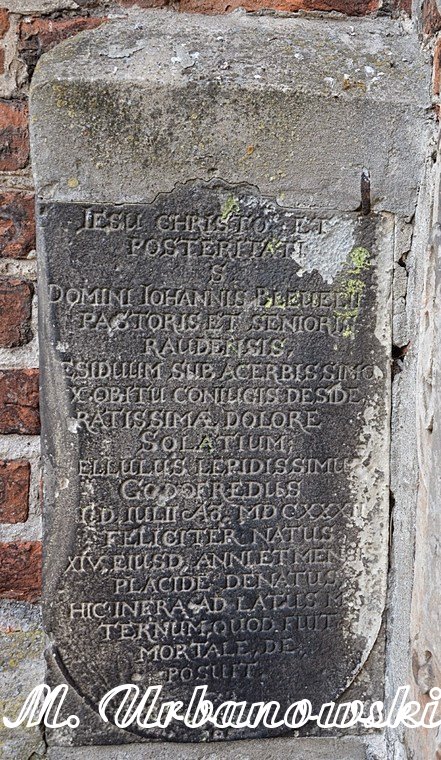 IESU CHRISTO ET
POSTERITATI
S
DOMINI IOHANNIS
PASTORIS ET SENIORIS
RAUDENSIS,
ESIDUUM SUB ACERBISSIMO
OBITU CONIUGIS DESIDE
RATISSIMÆ DOLORE
SOLATIUM,
ELLULUS LEPIDISSIMU
GODOFREDUS
D. IULII MDCXXXII
FELICITER NATUS
XIV, EIUSD, ANNI ET MENSI
PLACIDE, DENATUS,
HIC INERA AD LATUS M
TERNUM, QUOD FUIT
MORTALE, DE,
POSUIT.
M. Urbanowski